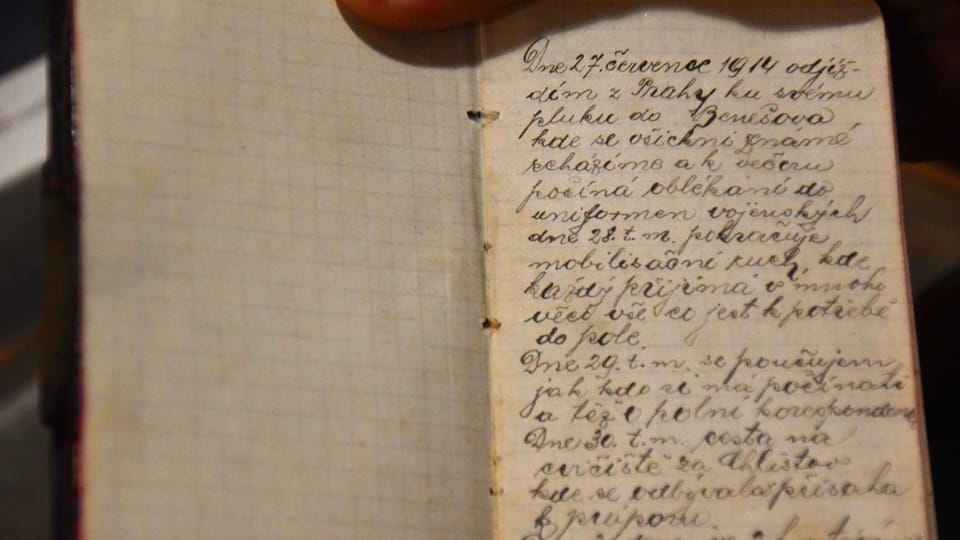 Dne 27. červenec 1914 odjíž-
dím z Prahy ku svému
pluku do Benešova
kde se všichni známé
scházíme a k večeru
počíná oblékání do
uniformen vojenských
dne 28. t. m. pokračuje
mobilisační ruch, kde
každý přijímá v mnoho
věcí vše co jest k potřebě
do pole.
Dne 29. t. m. se poučujem
jak kdo si má počínati
a též o polní korespondenci
Dne 30. t. m. cesta na
cvičiště za Chlistov
kde se odbývala přísaha
k práporu.